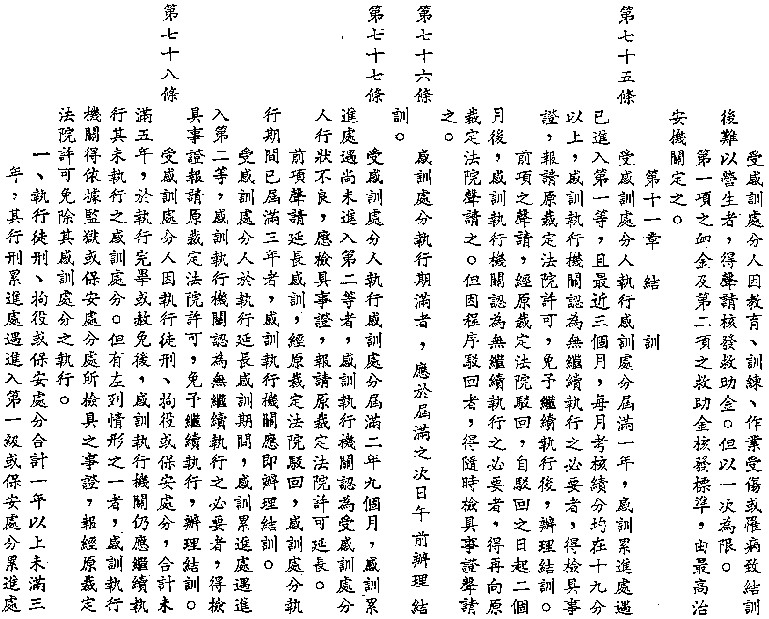 受感訓處分人因教育、訓練、作業受傷或罹病致結訓
後難以營生者，得聲請核發救助金。但以一次為限。
第一項之卹金及第二項之救助金核發標準，由最高治
安機關定之。
第十一章　結　訓
第七十五條　受感訓處分人執行感訓處分屆滿一年，感訓累進處遇
已進入第一等，且最近三個月，每月考核績分均在十九分
以上，感訓執行機關認為無繼續執行之必要者，得檢具事
證，報請原裁定法院許可，免予繼續執行後，辦理結訓。
前項之聲請，經原裁定法院駁回，自駁回之日起二個
月後，感訓執行機關認為無繼續執行之必要者，得再向原
裁定法院聲請之。但因程序駁回者，得隨時檢具事證聲請
之。
第七十六條　感訓處分執行期滿者，應於屆滿之次日午前辦理結
訓。
第七十七條　受感訓處分人執行感訓處分屆滿二年九個月，感訓累
進處遇尚未進入第二等者，感訓執行機關認為受感訓處分
人行狀不良，應檢具事證，報請原裁定法院許可延長。
前項聲請延長感訓，經原裁定法院駁回，感訓處分執
行期間已屆滿三年者，感訓執行機關應即辦理結訓。
受感訓處分人於執行延長感訓期間，感訓累進處遇進
入第二等，感訓執行機關認為無繼續執行之必要者，得檢
具事證報請原裁定法院許可，免予繼續執行，辦理結訓。
第七十八條　受感訓處分人因執行徒刑、拘役或保安處分，合計未
滿五年，於執行完畢或赦免後，感訓執行機關仍應繼續執
行其未執行之感訓處分。但有左列情形之一者，感訓執行
機關得依據監獄或保安處分處所檢具之事證，報經原裁定
法院許可免除其感訓處分之執行。
一、執行徒刑、拘役或保安處分合計一年以上未滿三
年，其行刑累進處遇進入第一級或保安處分累進處